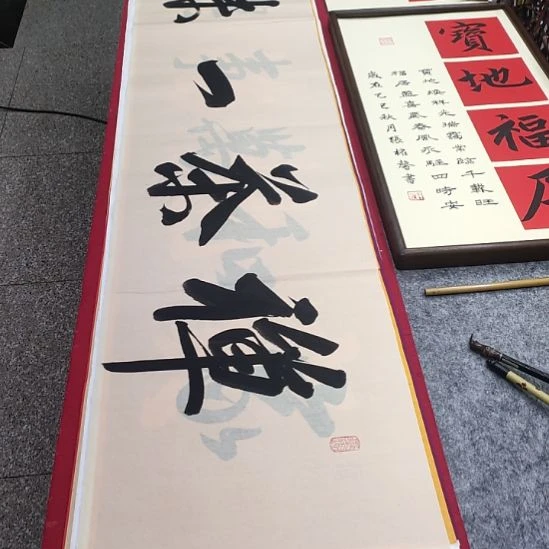 禪茶一
寶地福居
寶地煥祥光瑞靄常臨千載旺
福居盈喜氣春風永駐四時安
歲在乙巳秋月張